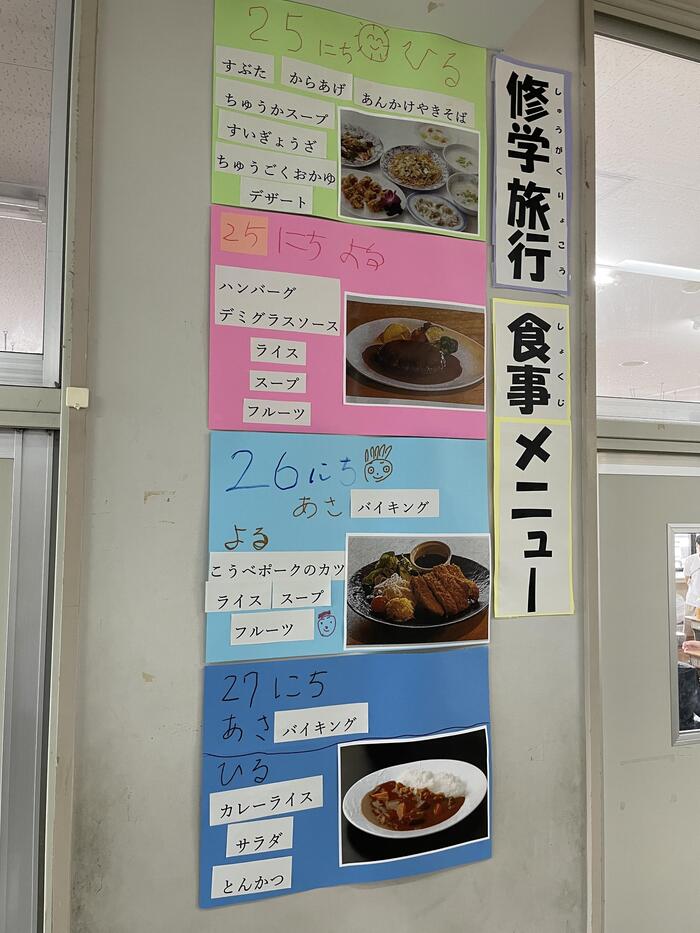 修学旅行
しゅうがくりょこう
食事メニュー
しょくじ
25にちひる
すぶた
からあげ
あんかけやきそば
ちゅうかスープ
すいぎょうざ
ちゅうごくおかゆ
デザート
25にちよる
ハンバーグ
デミグラスソース
ライス
スープ
フルーツ
26にち
あさ バイキング
よる
こうべポークのカツ
ライス スープ
フルーツ
27にち
あさ バイキング
ひる
カレーライス
サラダ
とんかつ